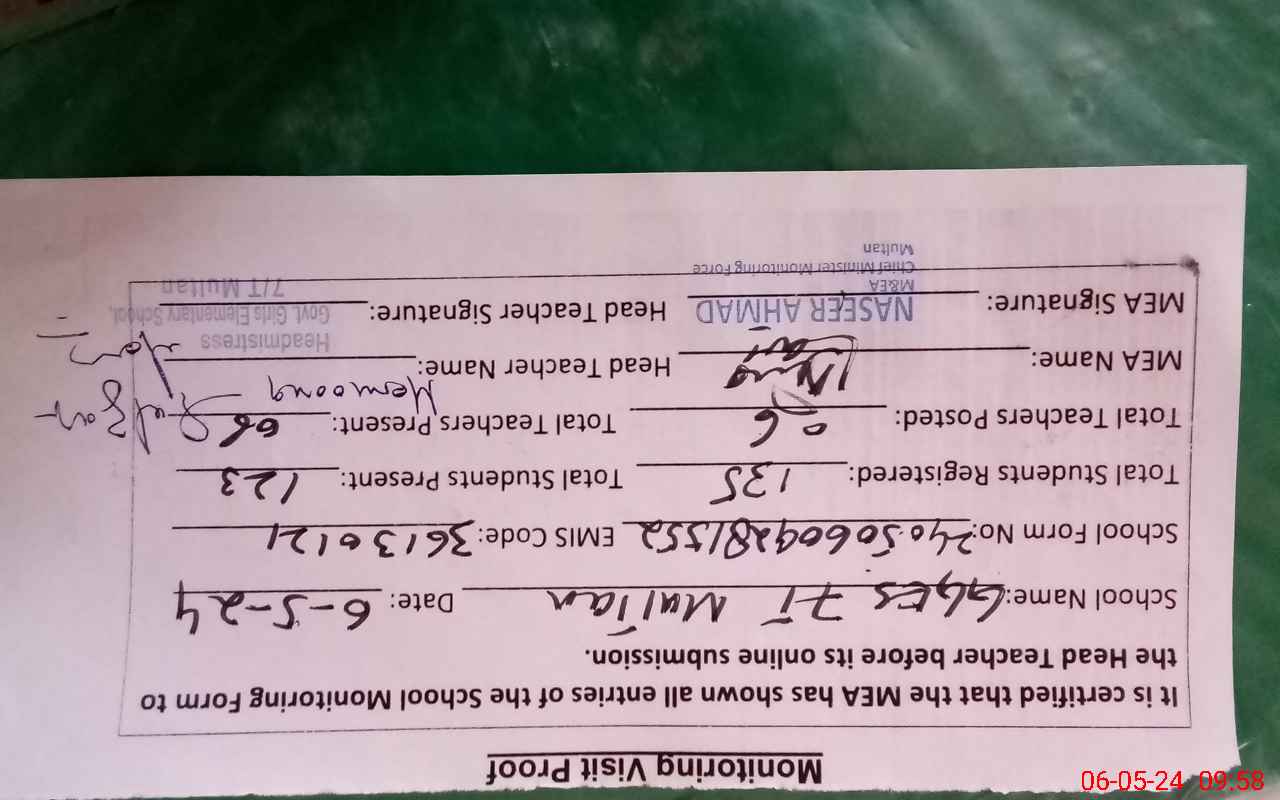 Monitoring Visit Proof
It is certified that the MEA has shown all entries of the School Monitoring Form to
the Head Teacher before its online submission.
School Name: GGES 7T Multan Date: 6-5-24
School Form No: EMIS Code: 36130121
Total Students Registered: 135 Total Students Present: 123
Total Teachers Posted: 06 Total Teachers Present: 06
MEA Name: Head Teacher Name: Memoona
MEA Signature: Head Teacher Signature:
NASEER AHMAD
M&EA
Chief Minister Monitoring Force
Multan
Headmistress
Govt. Girls Elementary School,
7/T Multan
06-05-24 09:58